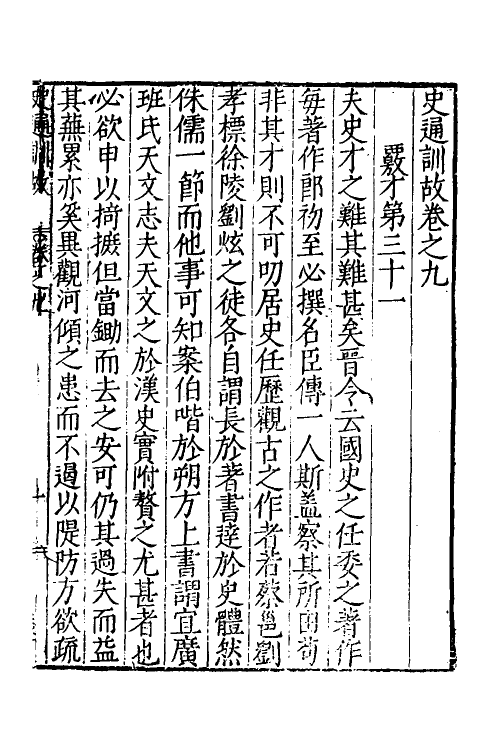 史通訓故卷之九
覈才第三十一
夫史才之難其難甚矣晉令云國史之任委之著作
每著作郎初至必撰名臣傳一人斯盖察其所由苟
非其才則不可叨居史任歷觀古之作者若蔡邕劉
孝標徐陵劉炫之徒各自謂長於著書達於史體然
侏儒一節而他事可知案伯喈於朔方上書謂宜廣
班氏天文志夫天文之於漢史實附贅之尤甚者也
必欲申以掎摭但當鋤而去之安可仍其過失而益
其蕪累亦奚異觀河傾之患而不遏以隄防方欲疏